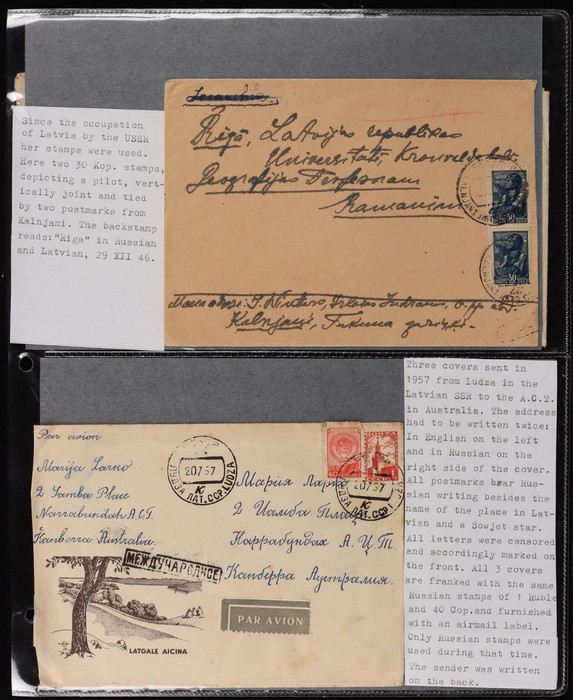 Since the occupation
of Latvia by the USSR
her stamps were used.
Here two 30 Kop. stamps,
depicting a pilot, vert-
ically joint and tied
by two postmarks from
Kalnjani. The backstamp
reads:"Riga" in Russian
and Latvian, 29 XII 46.
Rīgā, Latvijas republikas
Universitāti, Kronvalda bulv.
Geografijas Profesoram
Ramaninam
30
30
Kalnjani, Tukuma
Three covers sent in
1957 from Ludza in the
Latvian SSR to the A.C.T.
in Australia. The address
had to be written twice:
In English on the left
and in Russian on the
right side of the cover.
All postmarks bear Rus-
sian writing besides the
name of the place in Lat-
vian and a Sowjet star.
All letters were censored
and accordingly marked on
the front. All 3 covers
are franked with the same
Russian stamps of 1 Ruble
and 40 Cop.and furnished
with an airmail label.
Only Russian stamps were
used during that time.
The sender was written
on the back.
Par avion
Marija Larko
2 Iamba Place
Narrabundah A.C.T.
Kanberra Australia.
20757
К
ЛАТ.ССР.LUDZA
20757
К
ЛАТ.ССР.
Мария Ларко
2 Иамба Плац
Каррабундах А.Ц.Т
Канберра Аустралия.
МЕЖДУНАРОДНОЕ
PAR AVION
LATGALE AICINA